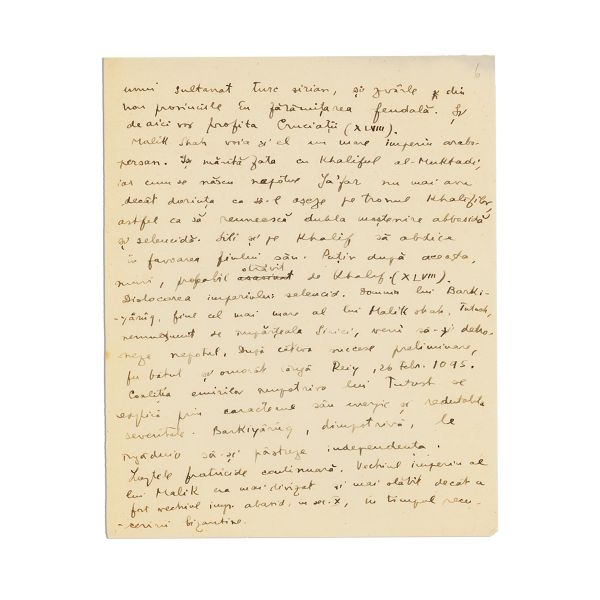 6
unui sultanat turc sirian, și zvârle din
nou provinciile în fărâmițarea feodală. Și
de aici vor profita Cruciații (XLVIII).
Malik shah voia și el un mare imperiu arabo-
persan. Își mărită fata cu Khaliful al-Muktadi,
iar cum se născu nepotul Ja'far nu mai avu
decât dorința ca să-l așeze pe tronul Khalifilor,
astfel ca să reunească dubla moștenire abbasidă
și seleucidă. Sili și pe Khalif să abdice
în favoarea fiului său. Puțin după aceasta,
otrăvit
muri, probabil asasinat de Khalif (XLVIII).
Dislocarea imperiului selencid. Domnia lui Barki-
-yârûq, fiul cel mai mare al lui Malik shah. Tutush,
nemulțumit de împărțeala Siriei, veni să-și detro-
neze nepotul. După câteva succese preliminare,
fu bătut și omorât lângă Reiy, 26 febr. 1095.
Coaliția emirilor împotriva lui Tutush se
explică prin caracterul său energic și redutabila
severitate. Barkiyârûq, dimpotrivă, le
îngăduia să-și păstreze independența.
Luptele fratricide continuară. Vechiul imperiu al
lui Malik era mai divizat și mai slăbit decât a
fost vechiul imp. abasid, în sec. X, în timpul recu-
-ceririi bizantine.